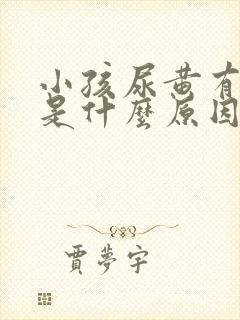 小孩尿黄有
是什麼原因
賈夢宇